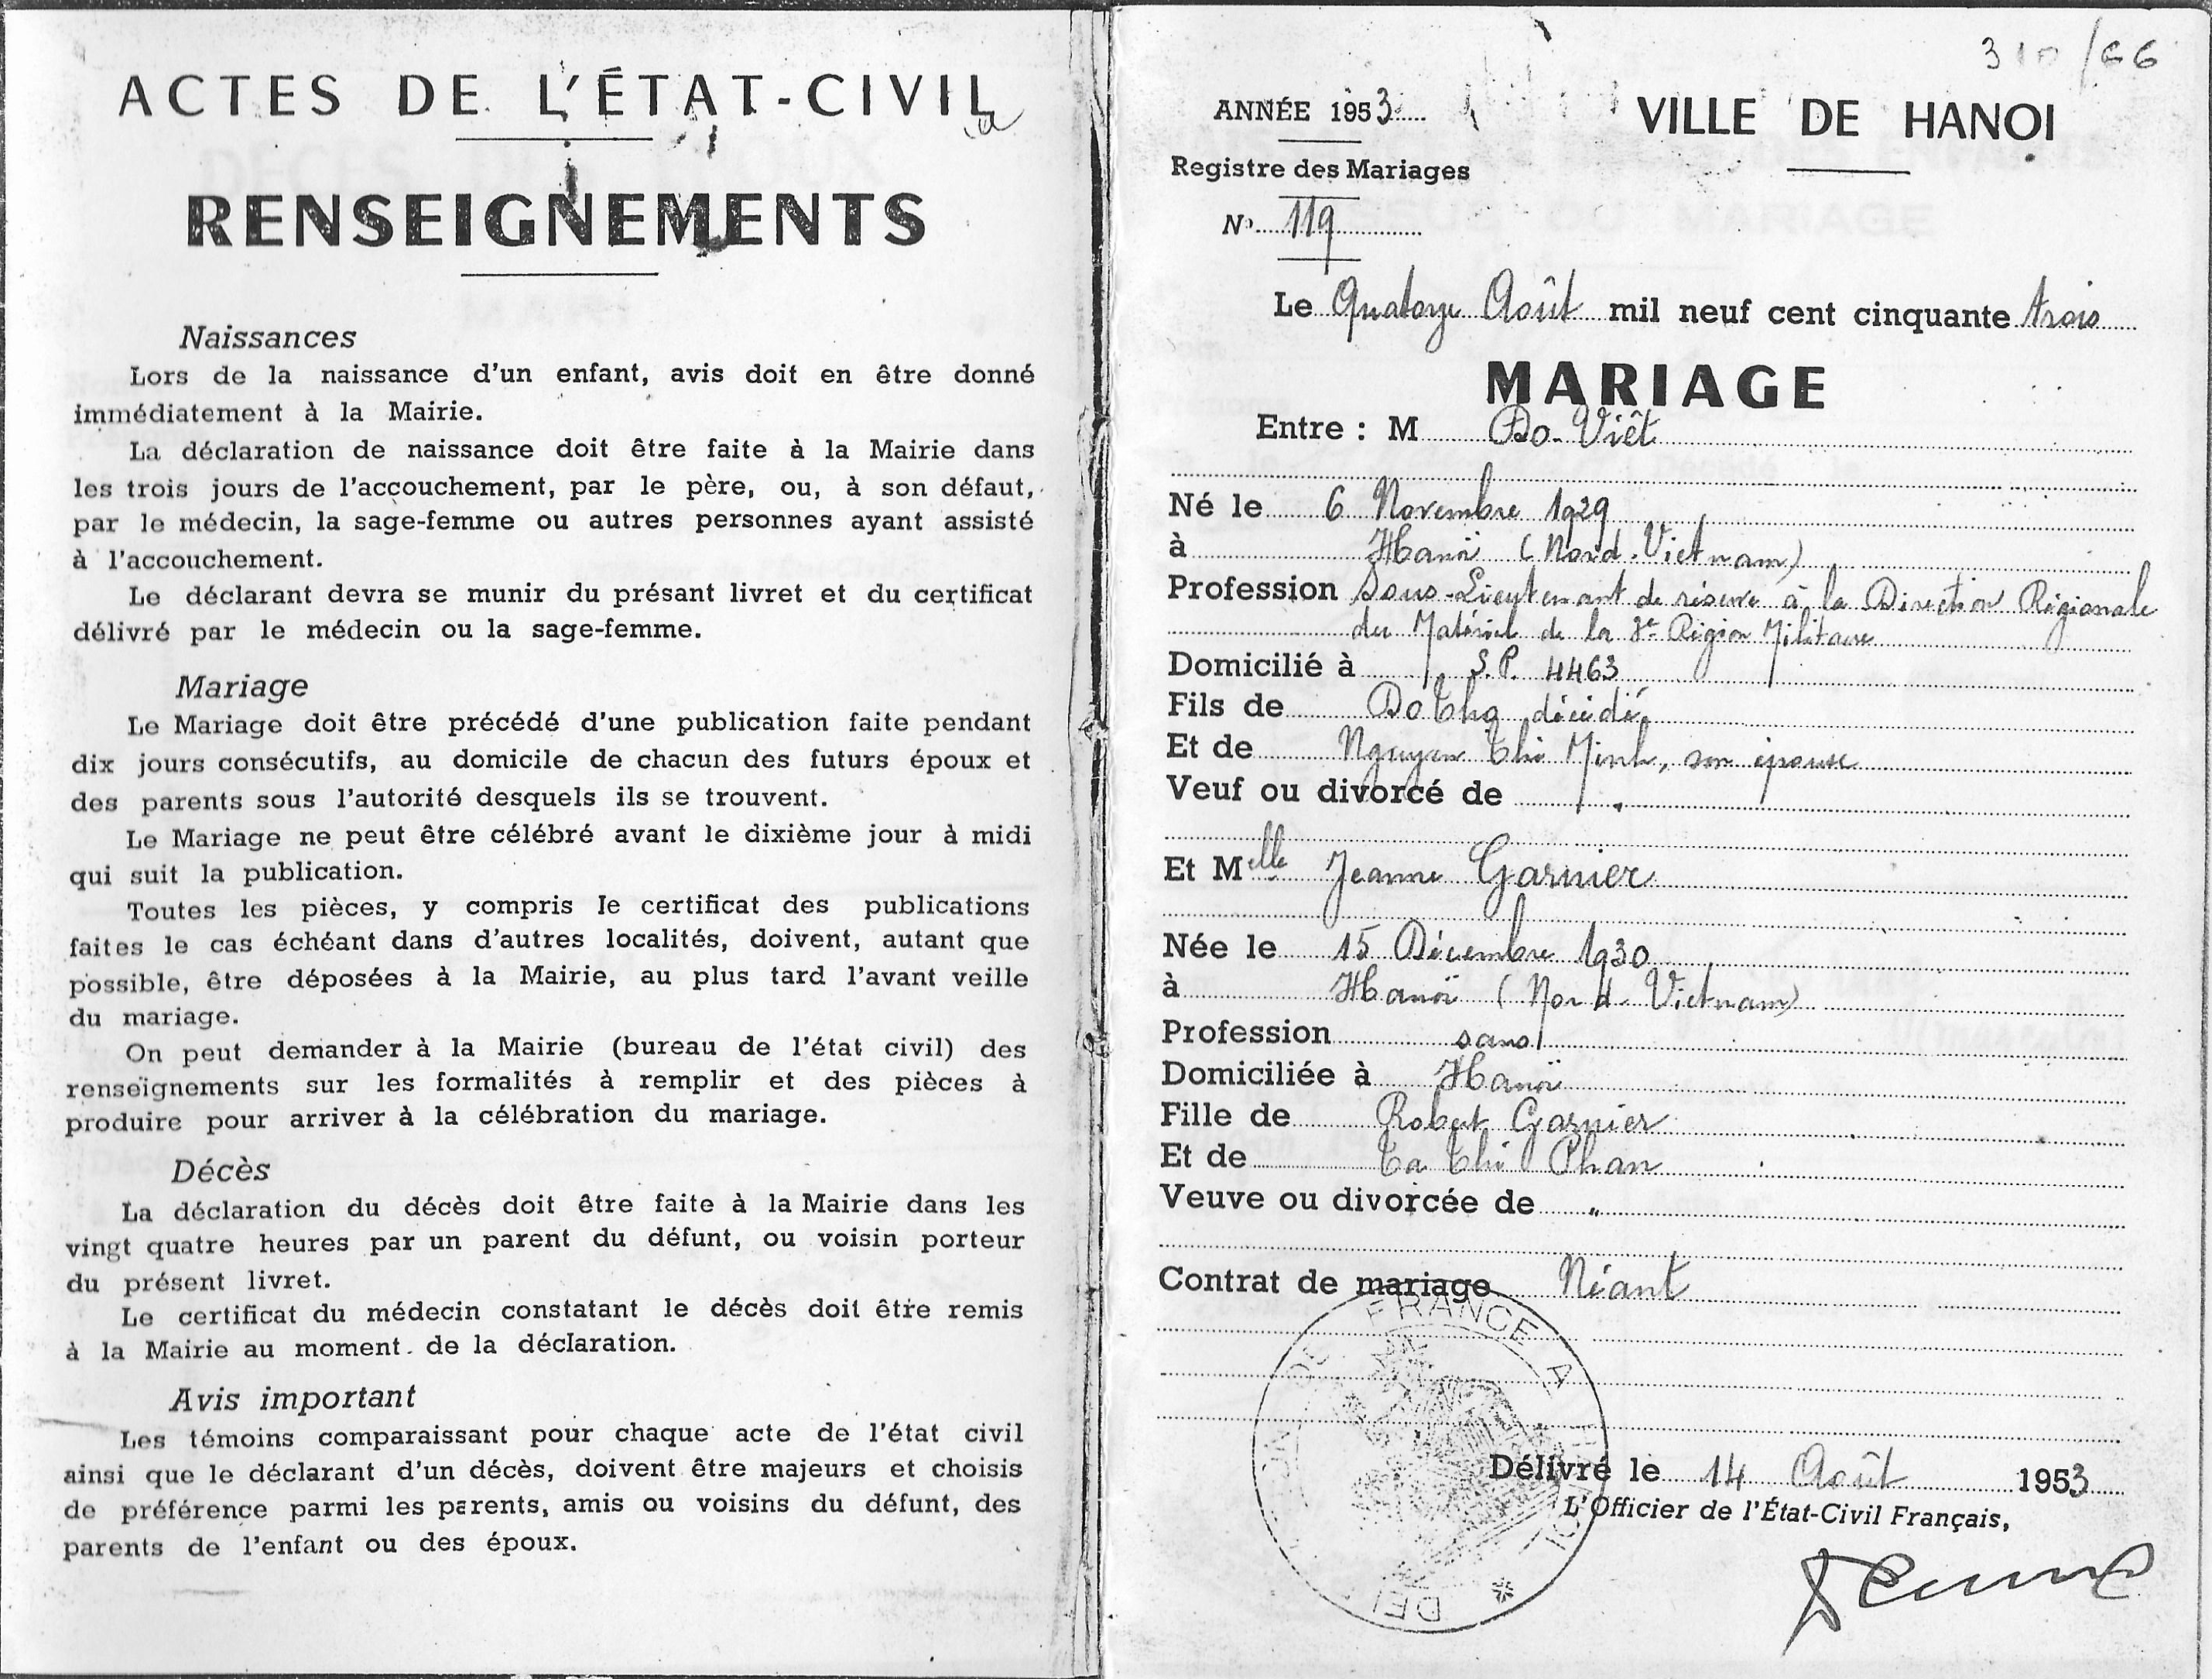 ACTES DE L'ÉTAT-CIVIL
RENSEIGNEMENTS
Naissances
Lors de la naissance d'un enfant, avis doit en être donné
immédiatement à la Mairie.
La déclaration de naissance doit être faite à la Mairie dans
les trois jours de l'accouchement, par le père, ou, à son défaut,
par le médecin, la sage-femme ou autres personnes ayant assisté
à l'accouchement.
Le déclarant devra se munir du présant livret et du certificat
délivré par le médecin ou la sage-femme.
Mariage
Le Mariage doit être précédé d'une publication faite pendant
dix jours consécutifs, au domicile de chacun des futurs époux et
des parents sous l'autorité desquels ils se trouvent.
Le Mariage ne peut être célébré avant le dixième jour à midi
qui suit la publication.
Toutes les pièces, y compris le certificat des publications
faites le cas échéant dans d'autres localités, doivent, autant que
possible, être déposées à la Mairie, au plus tard l'avant veille
du mariage.
On peut demander à la Mairie (bureau de l'état civil) des
renseignements sur les formalités à remplir et des pièces à
produire pour arriver à la célébration du mariage.
Décès
La déclaration du décès doit être faite à la Mairie dans les
vingt quatre heures par un parent du défunt, ou voisin porteur
du présent livret.
Le certificat du médecin constatant le décès doit être remis
à la Mairie au moment de la déclaration.
Avis important
Les témoins comparaissant pour chaque acte de l'état civil
ainsi que le déclarant d'un décès, doivent être majeurs et choisis
de préférence parmi les parents, amis ou voisins du défunt, des
parents de l'enfant ou des époux.
310/66
ANNÉE 1953
VILLE DE HANOI
Registre des Mariages
N° 119
Le Quatorze Août mil neuf cent cinquante trois
MARIAGE
Entre : M Do-Viêt
Né le 6 Novembre 1929
à Hanoï (Nord-Vietnam)
Profession Sous-Lieutenant de réserve à la Direction Régionale
du Matériel de la Région Militaire
Domicilié à S.P. 4463
Fils de Do Tho décédé
Et de Nguyen Thi Minh, son épouse
Veuf ou divorcé de
Et Melle Jeanne Garnier
Née le 15 Décembre 1930
à Hanoï (Nord-Vietnam)
Profession sans
Domiciliée à Hanoï
Fille de Robert Garnier
Et de Ta Thi Phan
Veuve ou divorcée de "
Contrat de mariage Néant
FRANCE A
Délivré le 14 Août 1953
L'Officier de l'État-Civil Français,